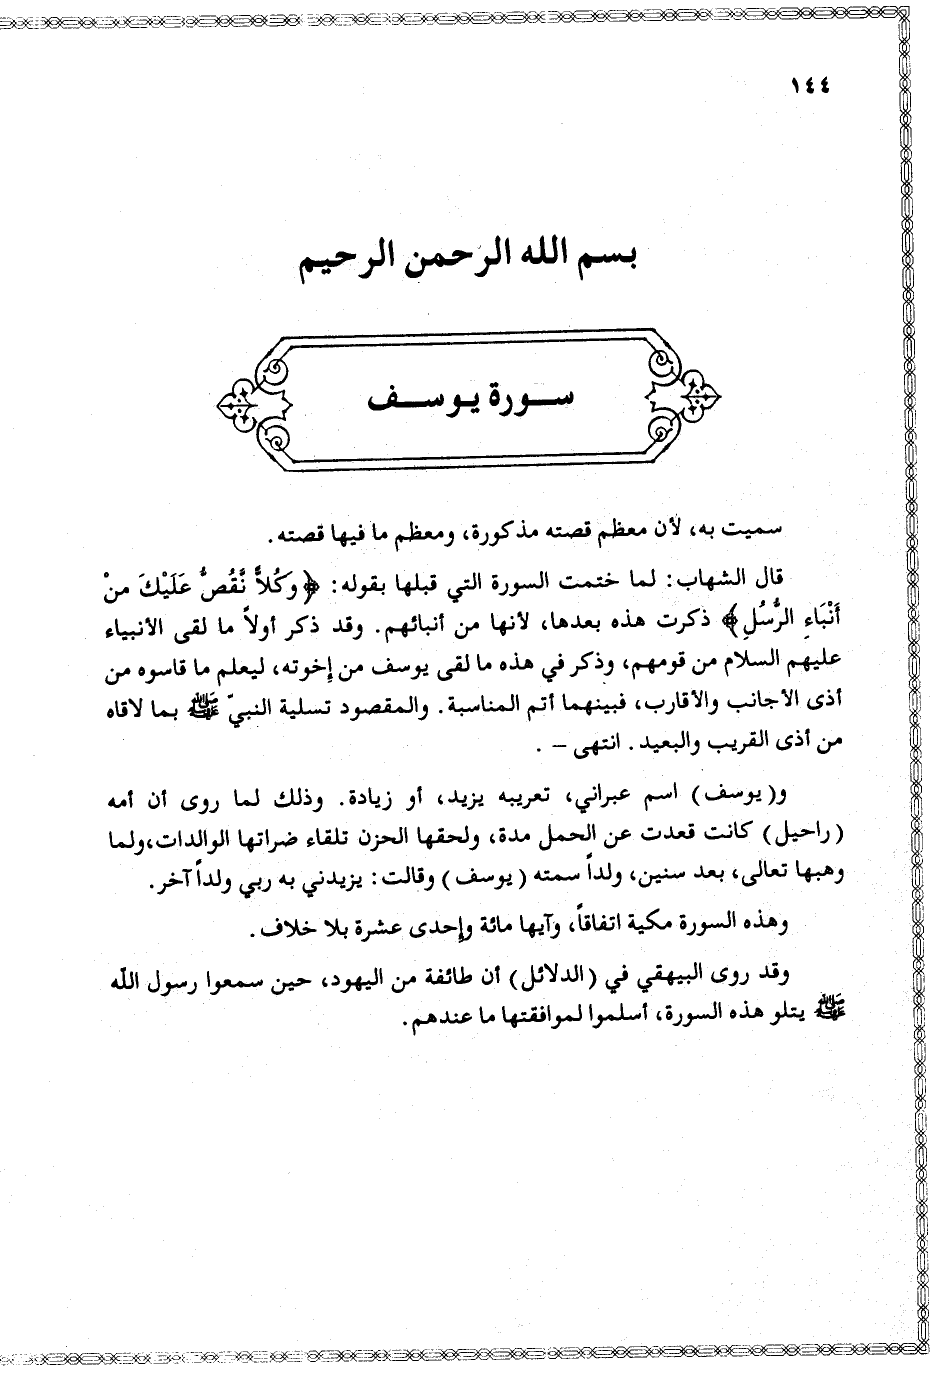 ١٤٤
بسم الله الرحمن الرحيم
سورة يوسف
سميت به، لأن معظم قصته مذكورة، ومعظم ما فيها قصته.
قال الشهاب: لما ختمت السورة التي قبلها بقوله: ﴿وَكُلاًّ نَّقُصُّ عَلَيْكَ مِنْ
أَنْبَاءِ الرُّسُلِ﴾ ذكرت هذه بعدها، لأنها من أنبائهم. وقد ذكر أولاً ما لقى الأنبياء
عليهم السلام من قومهم، وذكر في هذه ما لقى يوسف من إخوته، ليعلم ما قاسوه من
أذى الأجانب والأقارب، فبينهما أتم المناسبة. والمقصود تسلية النبيّ ﷺ بما لاقاه
من أذى القريب والبعيد. انتهى – .
و(يوسف) اسم عبراني، تعريبه يزيد، أو زيادة. وذلك لما روى أن أمه
(راحيل) كانت قعدت عن الحمل مدة، ولحقها الحزن تلقاء ضراتها الوالدات،ولما
وهبها تعالى، بعد سنين، ولداً سمته (يوسف) وقالت: يزيدني به ربي ولداً آخر.
وهذه السورة مكية اتفاقاً، وآيها مائة وإحدى عشرة بلا خلاف.
وقد روى البيهقي في (الدلائل) أن طائفة من اليهود، حين سمعوا رسول الله
ﷺ يتلو هذه السورة، أسلموا لموافقتها ما عندهم.